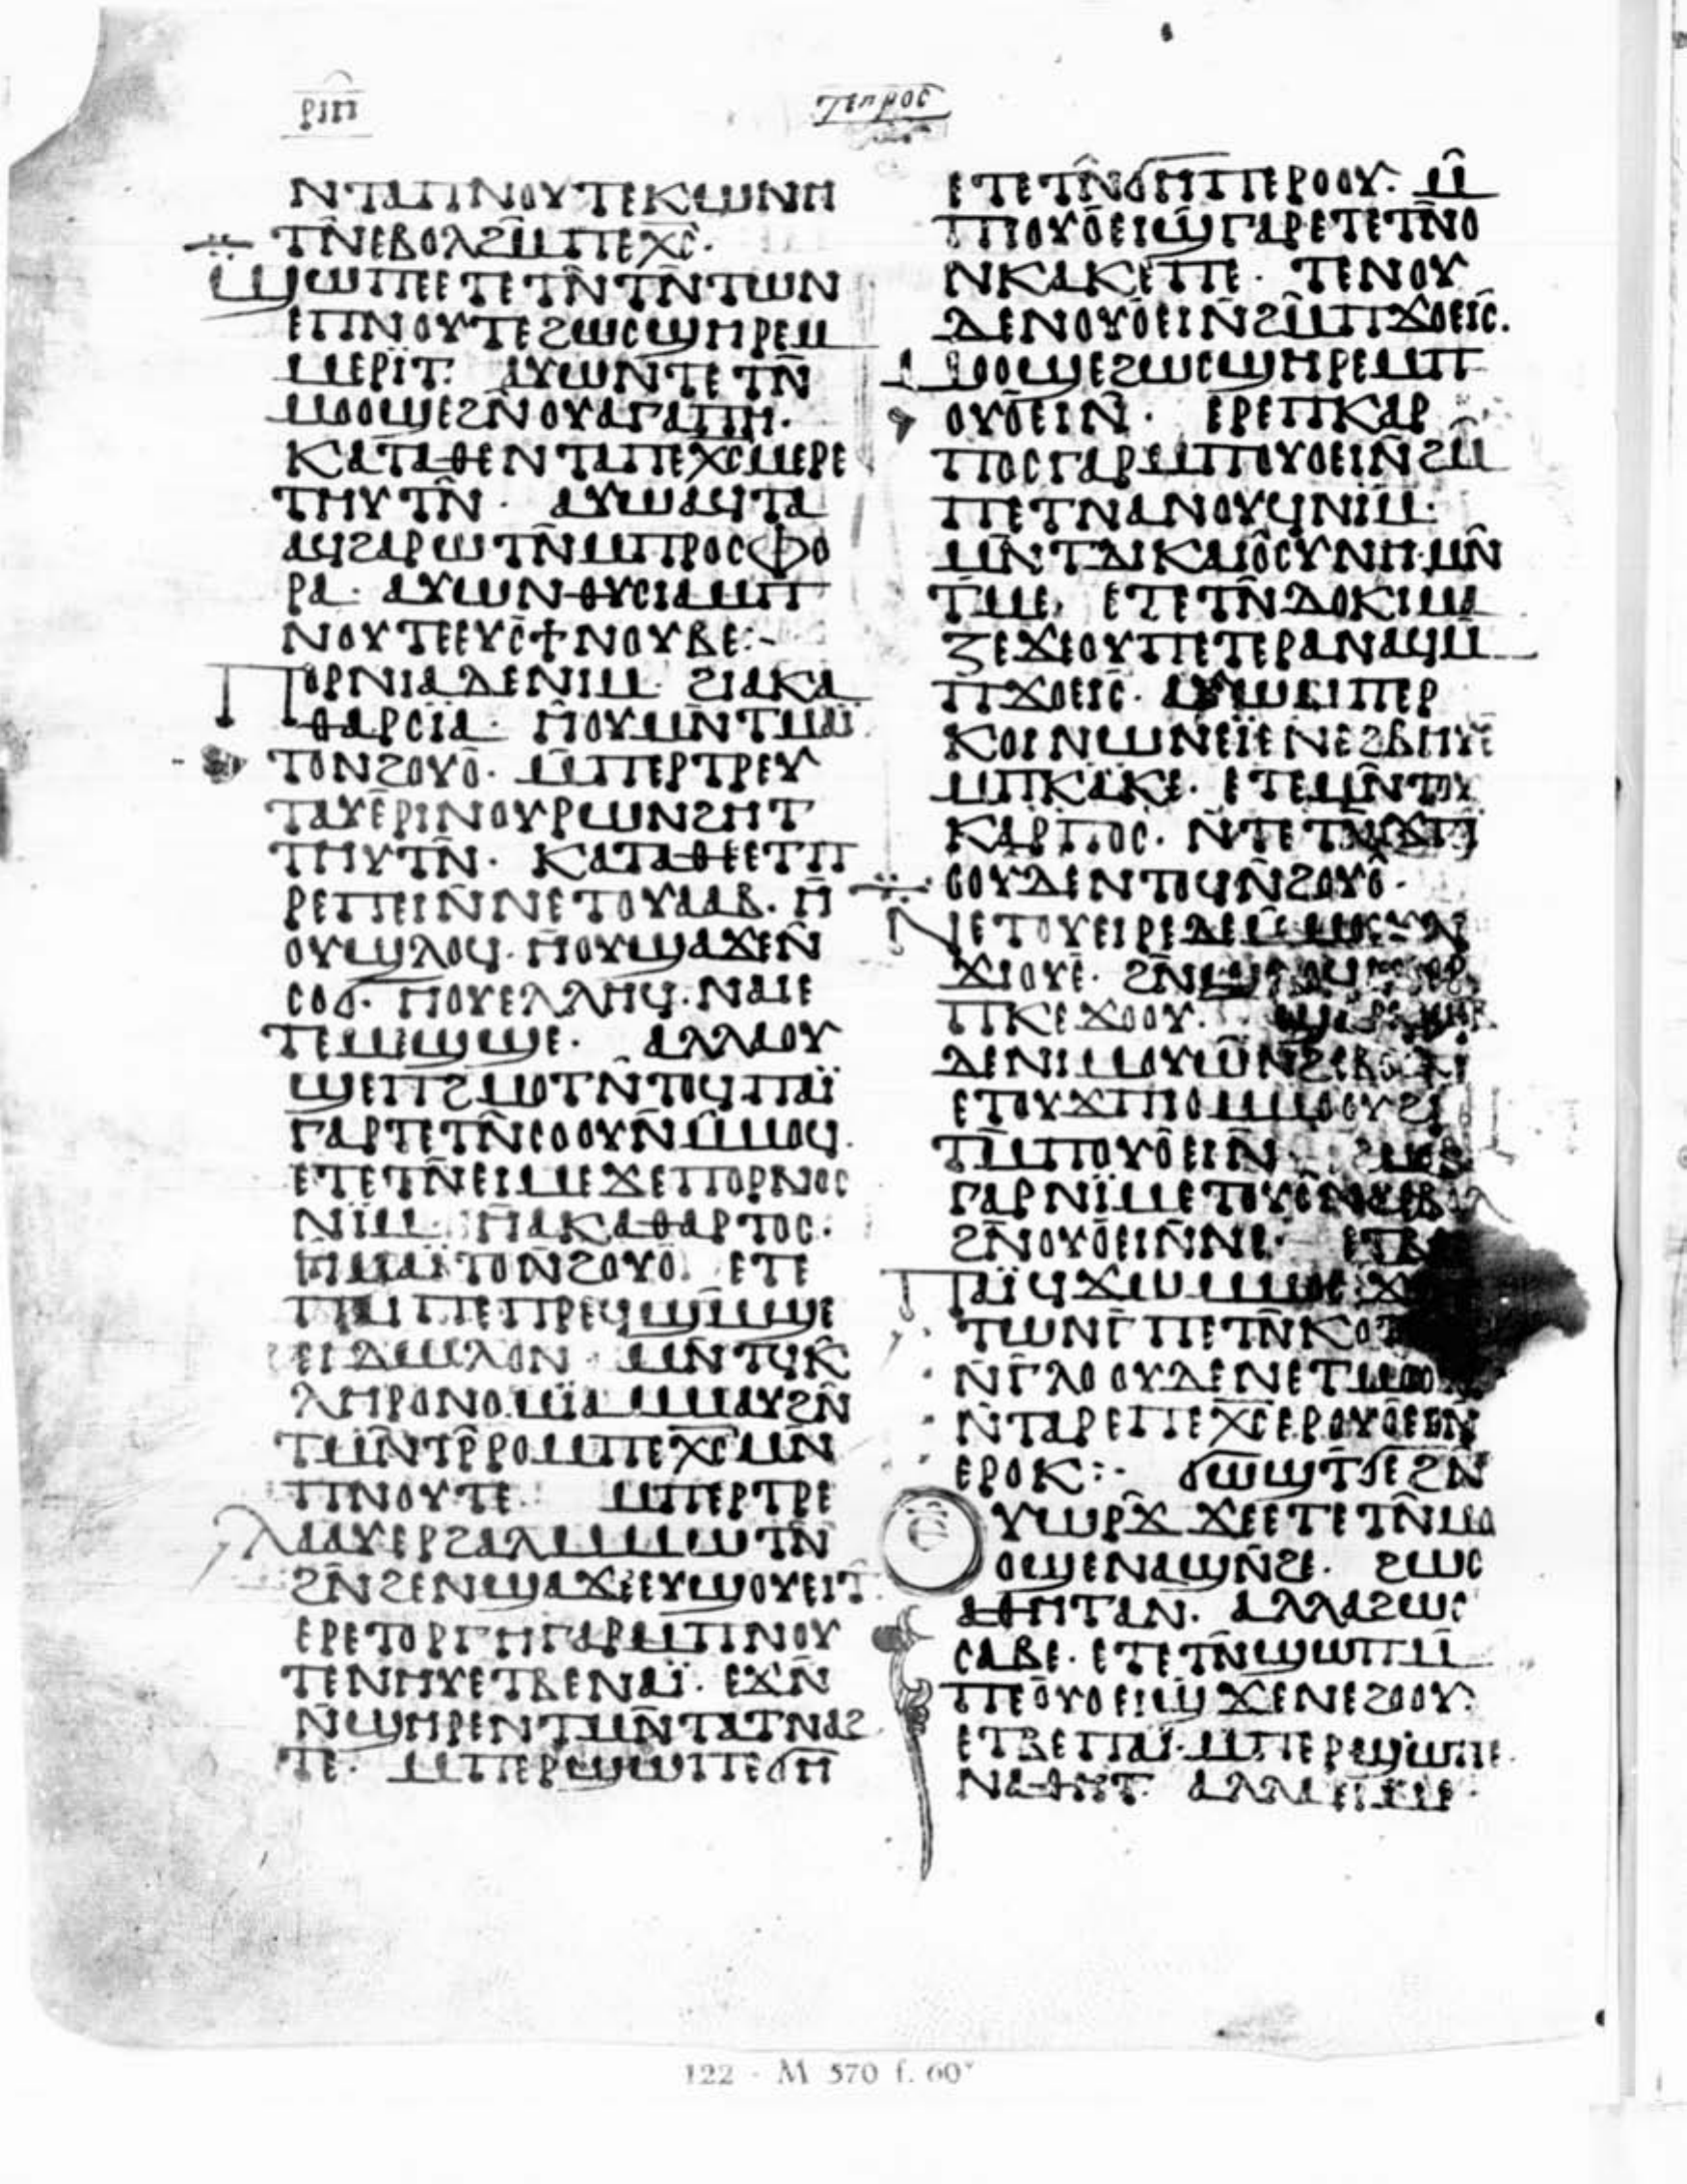 ⲣⲓⲡ
ⲛⲧⲁⲡⲛⲟⲩⲧⲉⲕⲱⲛⲏ
ⲧⲛ̄ⲉⲃⲟⲗϩⲙ̄ⲡⲉⲭ̅ⲥ̅·
ϣⲱⲡⲉⲉⲧⲉⲧⲛ̄ⲧⲛ̄ⲧⲱⲛ
ⲉⲡⲛⲟⲩⲧⲉϩⲱⲥϣⲏⲣⲉⲙ
ⲙⲉⲣⲓ̈ⲧ· ⲁⲩⲱⲛ̄ⲧⲉⲧⲛ̄
ⲙⲟⲟϣⲉϩⲛ̄ⲟⲩⲁⲅⲁⲡⲏ·
ⲕⲁⲧⲁⲑⲉⲛⲧⲁⲡⲉⲭ̅ⲥ̅ⲙⲉⲣⲉ
ⲧⲏⲩⲧⲛ̄· ⲁⲩⲱⲁϥⲧⲁ
ⲁϥϩⲁⲣⲱⲧⲛ̄ⲙⲡⲣⲟⲥⲫⲟ
ⲣⲁ· ⲁⲩⲱⲛⲑⲩⲥⲓⲁⲙⲡ
ⲛⲟⲩⲧⲉⲉⲩⲥϯⲛⲟⲩⲃⲉ:-
ⲡⲟⲣⲛⲓⲁⲇⲉⲛⲓⲙ· ϩⲓⲁⲕⲁ
ⲑⲁⲣⲥⲓ̈ⲁ· ⲏ̄ⲟⲩⲙⲛ̄ⲧⲙⲁⲓ̈
ⲧⲟⲛϩⲟⲩⲟ̄· ⲙ̄ⲡⲉⲣⲧⲣⲉⲩ
ⲧⲁⲩⲉ̄ⲣⲓⲛⲟⲩⲣⲱⲛϩⲏⲧ
ⲧⲏⲩⲧⲛ̄· ⲕⲁⲧⲁⲑⲉⲉⲧⲡ
ⲣⲉⲡⲉⲓⲛ̄ⲛⲉⲧⲟⲩⲁⲁⲃ· ⲏ̄
ⲟⲩϣⲗⲟϥ· ⲏⲟⲩϣⲁϫⲉⲛ̄
ⲥⲟϭ· ⲏⲟⲩⲉⲗⲗⲏϥ· ⲛⲁⲓⲉ
ⲧⲉⲙⲉϣϣⲉ· ⲁⲗⲗⲁⲟⲩ
ϣⲉⲡϩⲙⲟⲧⲛ̄ⲧⲟϥ ⲡⲁⲓ̈
ⲅⲁⲣⲧⲉⲧⲛ̄ⲥⲟⲟⲩⲛ̄ⲙ̄ⲙⲟϥ·
ⲉⲧⲉⲧⲛ̄ⲉⲓⲙⲉϫⲉⲡⲟⲣⲛⲟⲥ
ⲛⲓ̈ⲙ· ⲏⲁⲕⲁⲑⲁⲣⲧⲟⲥ·
ⲏⲙⲁⲓ̈ⲧⲟⲛ̄ϩⲟⲩⲟ̄· ⲉⲧⲉ
ⲡⲁⲓⲡⲉⲡⲣⲉϥϣⲙ̄ϣⲉ
ⲉⲓⲇⲱⲗⲟⲛ· ⲙⲛ̄ⲧϥⲕ̄
ⲗⲏⲣⲟⲛⲟⲙⲓ̈ⲁ ⲙⲙⲁⲩϩⲛ̄
ⲧⲙⲛ̄ⲧⲣ̄ⲣⲟⲙⲡⲉⲭ̅ⲥ̅ⲙⲛ̄
ⲡⲛⲟⲩⲧⲉ· ⲙⲡⲉⲣⲧⲣⲉ
ⲗⲁⲁⲩⲉⲣϩⲁⲗⲙⲙⲱⲧⲛ̄
ϩⲛ̄ϩⲉⲛϣⲁϫⲉⲉⲩϣⲟⲩⲉⲓⲧ
ⲉⲣⲉⲧⲟⲣⲅⲏⲅⲁⲣⲙⲡⲛⲟⲩ
ⲧⲉⲛⲏⲩⲉⲧⲃⲉⲛⲁⲓ̈· ⲉϫⲛ̄
ⲛ̄ϣⲏⲣⲉⲛⲧⲙⲛ̄ⲧⲁⲧⲛⲁϩ
ⲧⲉ· ⲙⲡⲉⲣϣⲱⲡⲉϭⲏ
ⲉⲧⲉⲧⲛ̄ϭⲏⲡⲉⲣⲟⲟⲩ· ⲙ̄
ⲡⲓⲟⲩⲟ̄ⲉⲓϣⲅⲁⲣⲉⲧⲉⲧⲛ̄ⲟ
ⲛⲕⲁⲕⲉⲡⲉ· ⲧⲉⲛⲟⲩ
ⲇⲉⲛⲟⲩⲟ̄ⲉⲓⲛ̄ϩⲙ̄ⲡϫⲟⲉⲓⲥ·
ⲙⲟⲟϣⲉϩⲱⲥϣⲏⲣⲉⲙⲡ
ⲟⲩⲟ̄ⲉⲓⲛ̄· ⲉⲣⲉⲡⲕⲁⲣ
ⲡⲟⲥⲅⲁⲣⲙⲡⲟⲩⲟⲉⲓⲛ̄ϩⲙ̄
ⲡⲉⲧⲛⲁⲛⲟⲩϥⲛⲓ̈ⲙ·
ⲙⲛ̄ⲧⲇⲓⲕⲁⲓⲟ̄ⲥⲩⲛⲏ·ⲙⲛ̄
ⲧⲙⲉ· ⲉⲧⲉⲧⲛ̄ⲇⲟⲕⲓⲙⲁ
ⲍⲉϫⲉⲟⲩⲡⲉⲧⲉⲣⲁⲛⲁϥⲙ
ⲡϫⲟⲉⲓⲥ· ⲁⲩⲱⲙⲡⲉⲣ
ⲕⲟⲓⲛⲱⲛⲉⲓ̈ⲉⲛⲉϩⲃⲏⲩⲉ̄
ⲙⲡⲕⲁⲕⲉ· ⲉⲧⲉⲙⲛ̄ⲧⲟⲩ
ⲕⲁⲣⲡⲟⲥ· ⲛ̄ⲧⲉⲧⲛ̄ϫⲡⲓ
ⲟⲟⲩⲇⲉⲛⲧⲟϥⲛ̄ϩⲟⲩⲟ̄·
ⲛⲉⲧⲟⲩⲉⲓⲣⲉ
ϫⲓⲟⲩⲉ·
ⲡⲕⲉϫⲟⲟⲩ·
ⲇⲉⲛⲓⲙⲟⲩⲱⲛϩⲉⲃⲟⲗ
ⲉⲧⲟⲩϫⲡⲓⲟⲙⲙⲟⲟⲩϩⲓ
ⲧⲙ̄ⲡⲟⲩⲟ̄ⲉⲓⲛ·
ⲅⲁⲣⲛⲓ̈ⲙⲉⲧⲟⲩⲟⲛϩ
ϩⲛ̄ⲟⲩⲟ̄ⲉⲓⲛ̄ⲛⲉ· ⲉⲧⲃⲉ
ⲡⲁⲓ̈ϥϫⲱⲙⲙⲟⲥϫ
ⲧⲱⲛⲅ̄ⲡⲉⲧⲛ̄ⲕⲟⲧ
ⲛⲅ̄ⲗⲟ ⲟⲩⲇⲉⲛⲉⲧⲙⲟⲟ
ⲛ̄ⲧⲁⲣⲉⲡⲉⲭ̅ⲥ̅ⲉⲣⲟⲩⲟ̄ⲉⲓⲛ̄
ⲉⲣⲟⲕ:- ϭⲱϣⲧϭⲉϩⲛ
ⲟⲩⲱⲣϫ̄ ϫⲉⲉⲧⲉⲧⲛ̄ⲙⲟ
ⲟϣⲉⲛⲁϣⲛ̄ϩⲉ· ϩⲱⲥ
ⲁⲑⲏⲧⲁⲛ· ⲁⲗⲗⲁϩⲱⲥ
ⲥⲁⲃⲉ· ⲉⲧⲉⲧⲛ̄ϣⲱⲡⲙ̄
ⲡⲉⲟⲩⲟⲉⲓϣ ϫⲉⲛⲉϩⲟⲟⲩ·
ⲉⲧⲃⲉⲡⲁⲓ̈·ⲙⲡⲉⲣϣⲱⲡⲉ·
ⲛⲁⲑⲏⲧ· ⲁⲗⲗⲁⲉⲓⲙⲉ·
122 - M 570 f. 60ᵛ